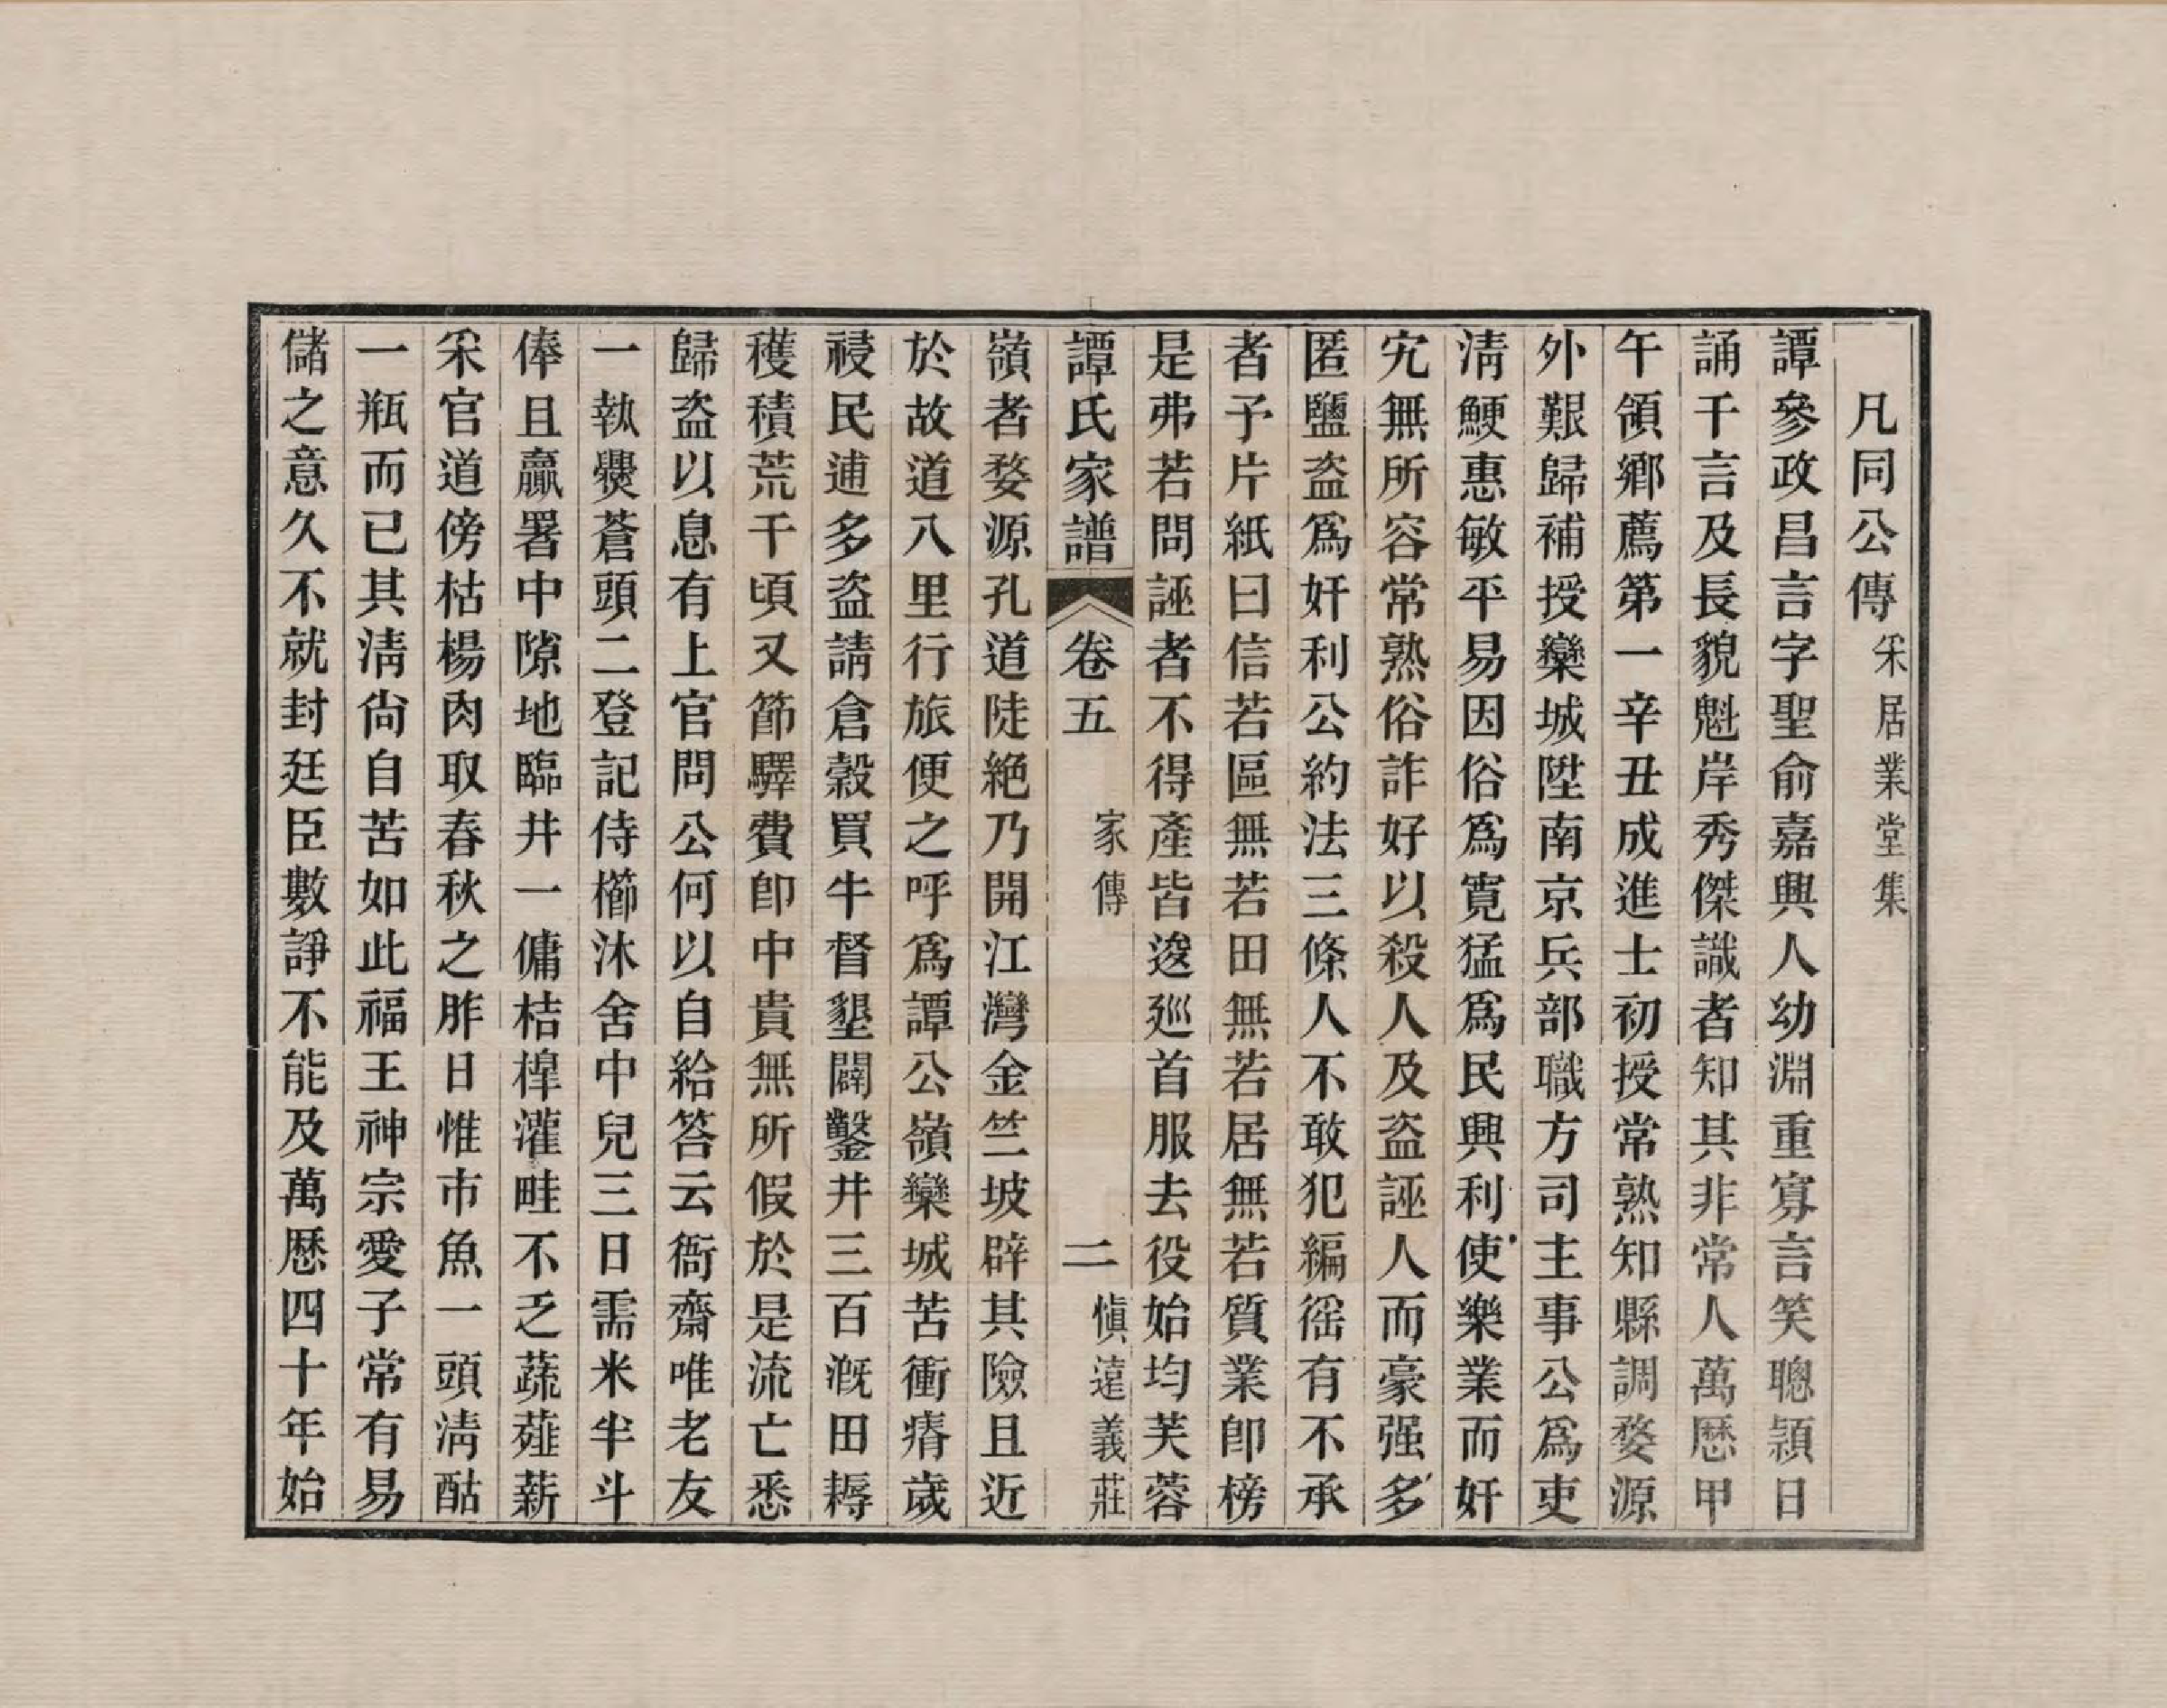 凡同公傳 采居業堂集
譚參政昌言字聖俞嘉興人幼淵重寡言笑聰穎日
誦千言及長貌魁岸秀傑識者知其非常人萬厯甲
午領鄉薦第一辛丑成進士初授常熟知縣調婺源
外艱歸補授欒城陞南京兵部職方司主事公爲吏
淸鯁惠敏平易因俗爲寬猛爲民興利使樂業而奸
宄無所容常熟俗詐好以殺人及盜誣人而豪强多
匿鹽盜爲奸利公約法三條人不敢犯編徭有不承
者予片紙曰信若區無若田無若居無若質業卽榜
是弗若問誣者不得產皆逡廵首服去役始均芙蓉
譚氏家譜 卷五 家傳 二 愼遠義莊
嶺者婺源孔道陡絕乃開江灣金竺坡辟其險且近
於故道八里行旅便之呼爲譚公嶺欒城苦衝瘠歲
祲民逋多盜請倉穀買牛督墾闢鑿井三百漑田耨
穫積荒千頃又節驛費卽中貴無所假於是流亡悉
歸盜以息有上官問公何以自給答云衙齋唯老友
一執爨蒼頭二登記侍櫛沐舍中兒三日需米半斗
俸且贏署中隙地臨井一傭桔橰灌畦不乏蔬薤薪
采官道傍枯楊肉取春秋之胙日惟市魚一頭淸酤
一瓶而已其淸尙自苦如此福王神宗愛子常有易
儲之意久不就封廷臣數諍不能及萬厯四十年始